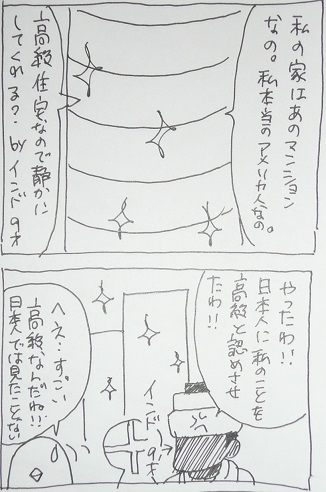 私の家はあのマンション
なの。私本当のアメリカ人なの。
高級住宅なので静かに
してくれる？ byインド9才
やったわ!!
日本人に私のことを
高級と認めさせ
たわ!!
インド9才
へえ…すごい
高級なんだね!!
日本では見たことない